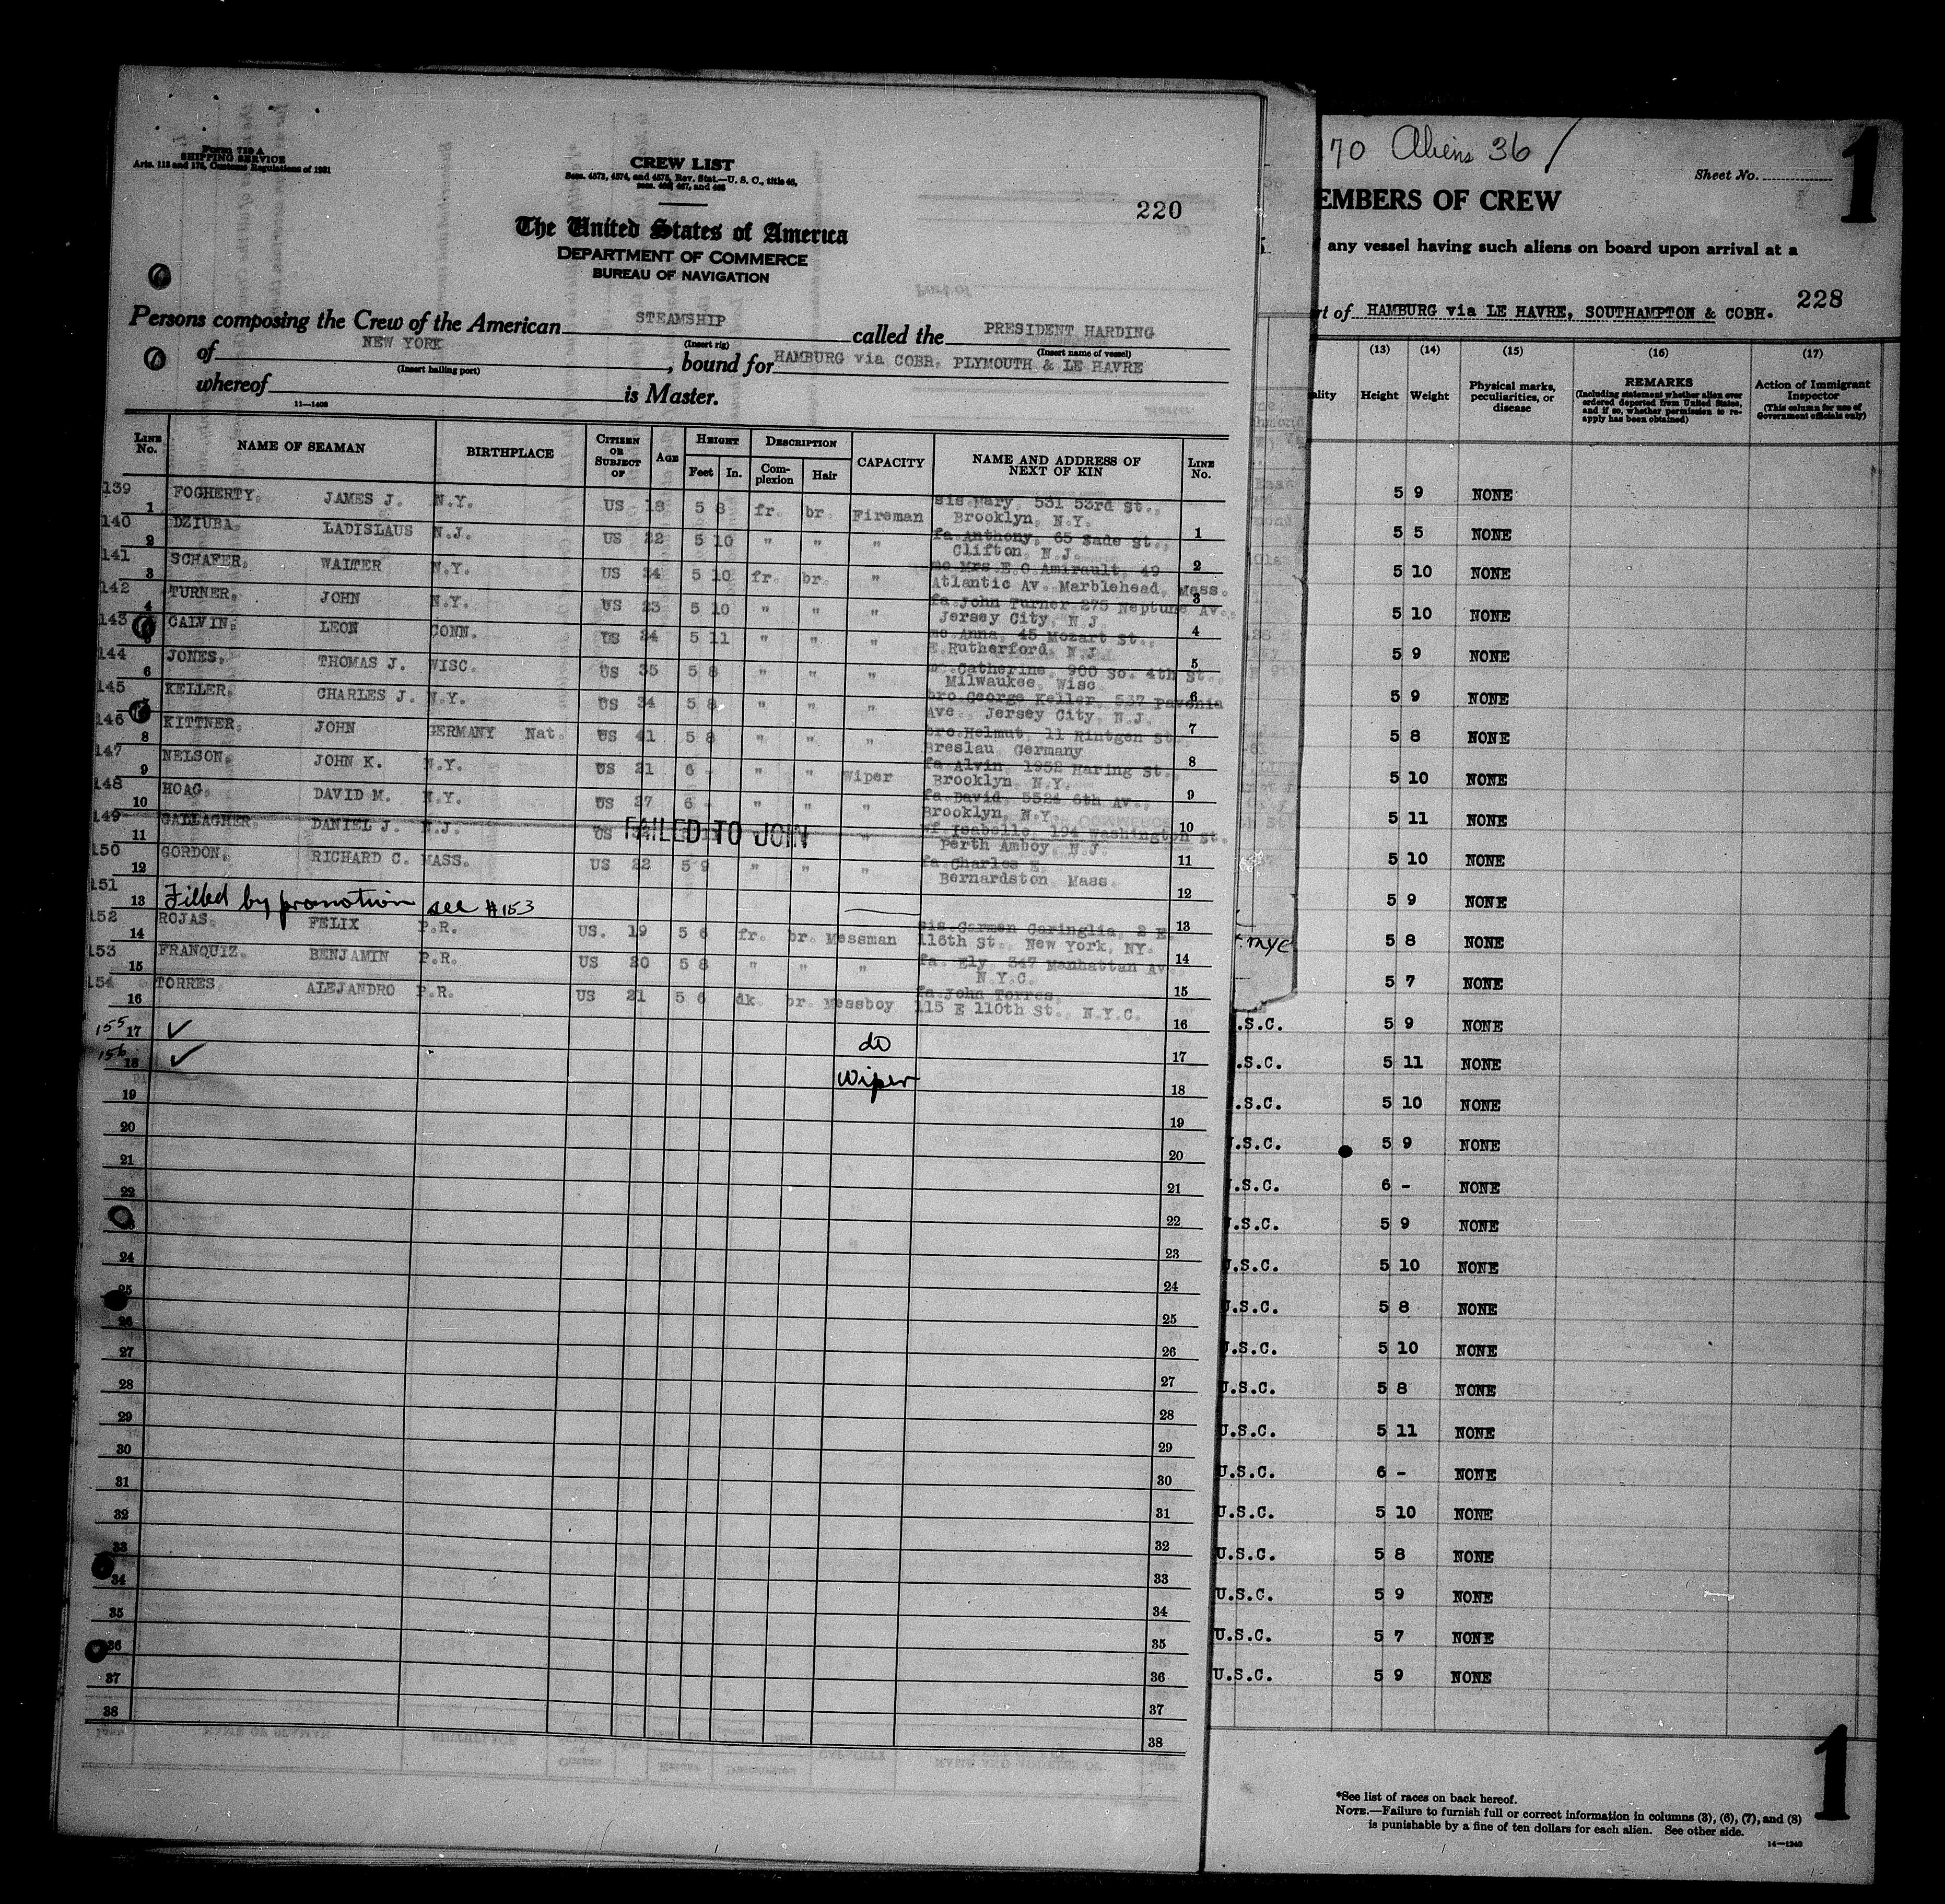 Form 719 A
SHIPPING SERVICE
Arts. 113 and 176, Customs Regulations of 1931
CREW LIST
Secs. 4573, 4574, and 4575, Rev. Stat.—U. S. C., title 46,
secs. 466, 467, and 468
220
The United States of America
DEPARTMENT OF COMMERCE
BUREAU OF NAVIGATION
Persons composing the Crew of the American STEAMSHIP called the PRESIDENT HARDING
(Insert rig) (Insert name of vessel)
of NEW YORK, bound for HAMBURG via COBH, PLYMOUTH & LE HAVRE
(Insert hailing port)
whereof is Master.
11—1408
LINE No. NAME OF SEAMAN BIRTHPLACE CITIZEN OR SUBJECT OF AGE HEIGHT Feet In. DESCRIPTION Complexion Hair CAPACITY NAME AND ADDRESS OF NEXT OF KIN LINE No.
139 1 FOGHERTY, JAMES J. N.Y. US 18 5 8 fr. br. Fireman sis Mary, 531 53rd St., Brooklyn, N.Y. 1
140 2 DZIUBA, LADISLAUS N.J. US 22 5 10 " " " fa Anthony, 65 Sade St., Clifton, N.J. 2
141 3 SCHAFER, WALTER N.Y. US 24 5 10 fr. br. " mo Mrs E.C.Amirault, 49 Atlantic Av. Marblehead, Mass. 3
142 4 TURNER, JOHN N.Y. US 23 5 10 " " " fa John Turner 275 Neptune Av., Jersey City, N J 4
143 5 CALVIN, LEON CONN. US 24 5 11 " " " mo Anna, 45 Mozart St., E.Rutherford, N.J. 5
144 6 JONES, THOMAS J. WISC. US 35 5 8 " " " Catherine, 900 So. 4th St., Milwaukee, Wisc. 6
145 7 KELLER, CHARLES J. N.Y. US 34 5 8 " " " bro George Keller, 537 Pavonia Ave., Jersey City, N.J. 7
146 8 KITTNER, JOHN GERMANY Nat. US 41 5 8 " " " bro Helmut, 11 Rintgen St. Breslau, Germany 8
147 9 NELSON, JOHN K. N.Y. US 21 6 - " " Wiper fa Alvin, 1952 Haring St., Brooklyn, N.Y. 9
148 10 HOAG, DAVID M. N.Y. US 27 6 - " " " fa David, 5524 6th Av., Brooklyn, N.Y. 10
149 11 GALLAGHER, DANIEL J. N.J. US FAILED TO JOIN " wf Isabelle, 194 Washington St. Perth Amboy, N.J. 11
150 12 GORDON, RICHARD C. MASS. US 22 5 9 " " " fa Charles E. Bernardston, Mass. 12
151 13 Filled by promotion see #153 13
152 14 ROJAS, FELIX P.R. US. 19 5 6 fr. br. Messman sis Carmen Caringlia, 2 E. 116th St., New York, NY. 14
153 15 FRANQUIZ, BENJAMIN P.R. US 20 5 8 " " " fa. Ely, 347 Manhattan Av. N.Y.C. 15
154 16 TORRES ALEJANDRO P.R. US 21 5 6 dk. br. Messboy fa John Torres, 115 E 110th St., N.Y.C. 16
155 17 ✓ do 17
156 18 ✓ Wiper 18
19 19
20 20
21 21
22 22
23
24 24
25 25
26 26
27 27
28 28
29 29
30 30
31 31
32 32
33 33
34 34
35 35
36 36
37 37
38 38
70 Aliens 36 /
Sheet No.
1
EMBERS OF CREW
any vessel having such aliens on board upon arrival at a
228
rt of HAMBURG via LE HAVRE, SOUTHAMPTON & COBH.
(13) (14) (15) (16) (17)
ality Height Weight Physical marks, peculiarities, or disease REMARKS (Including statement whether alien ever ordered deported from United States, and if so, whether permission to reapply has been obtained) Action of Immigrant Inspector (This column for use of Government officials only)
5 9 NONE
5 5 NONE
5 10 NONE
5 10 NONE
5 9 NONE
5 9 NONE
5 8 NONE
5 10 NONE
5 11 NONE
5 10 NONE
5 9 NONE
5 8 NONE
5 7 NONE
.S.C. 5 9 NONE
.S.C. 5 11 NONE
.S.C. 5 10 NONE
.S.C. 5 9 NONE
.S.C. 6 - NONE
U.S.C. 5 9 NONE
U.S.C. 5 10 NONE
U.S.C. 5 8 NONE
U.S.C. 5 10 NONE
U.S.C. 5 8 NONE
U.S.C. 5 11 NONE
U.S.C. 6 - NONE
U.S.C. 5 10 NONE
U.S.C. 5 8 NONE
U.S.C. 5 9 NONE
U.S.C. 5 7 NONE
U.S.C. 5 9 NONE
*See list of races on back hereof.
NOTE.—Failure to furnish full or correct information in columns (3), (6), (7), and (8)
is punishable by a fine of ten dollars for each alien. See other side.
14—1240
1